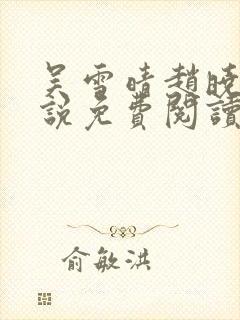 吴雪晴趙曉
說免費閱讀
俞敏洪